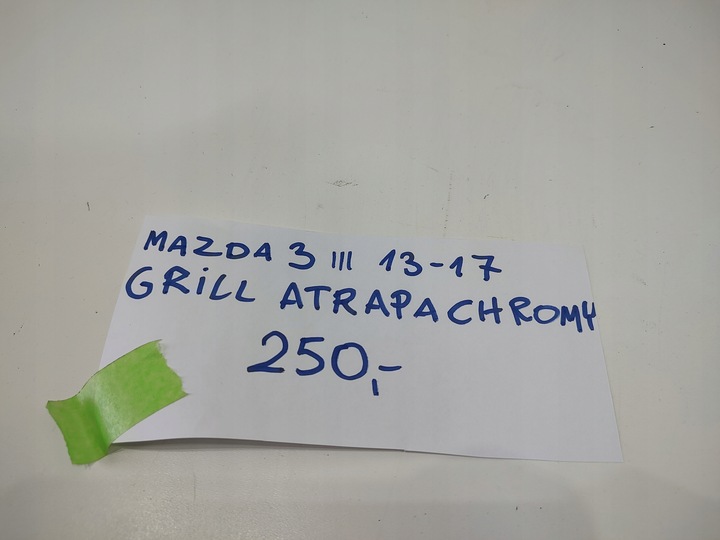 MAZDA 3 III 13-17
GRiLL ATRAPA CHROMY
250,-